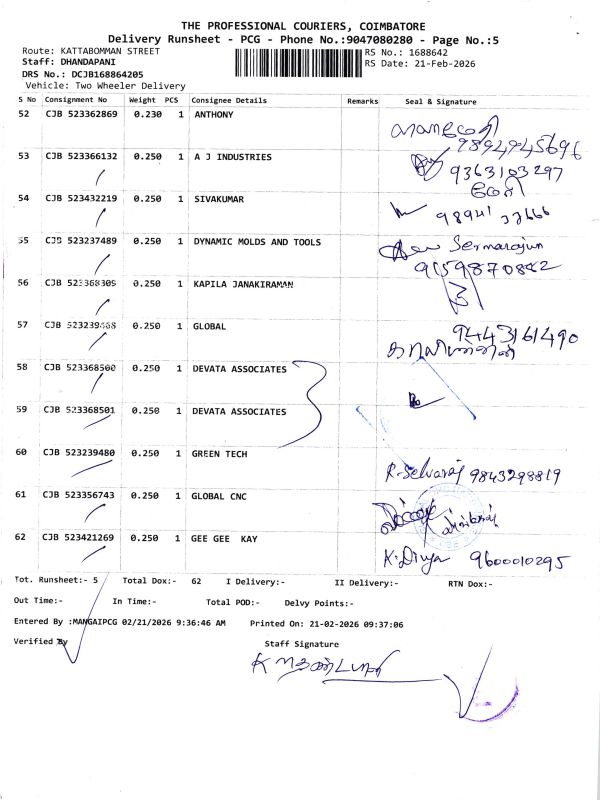 THE PROFESSIONAL COURIERS, COIMBATORE
Delivery Runsheet - PCG - Phone No.:9047080280 - Page No.:5
Route: KATTABOMMAN STREET
RS No.: 1688642
Staff: DHANDAPANI
RS Date: 21-Feb-2026
DRS No.: DCJB168864205
Vehicle: Two Wheeler Delivery
S No Consignment No Weight PCS Consignee Details Remarks Seal & Signature
52 CJB 523362869 0.230 1 ANTHONY
9894945696
53 CJB 523366132 0.250 1 A J INDUSTRIES
9363103297
54 CJB 523432219 0.250 1 SIVAKUMAR
98941 32666
55 CJB 523237489 0.250 1 DYNAMIC MOLDS AND TOOLS
9159870842
56 CJB 523368309 0.250 1 KAPILA JANAKIRAMAN
57 CJB 523239468 0.250 1 GLOBAL
9443161490
58 CJB 523368500 0.250 1 DEVATA ASSOCIATES
59 CJB 523368501 0.250 1 DEVATA ASSOCIATES
60 CJB 523239480 0.250 1 GREEN TECH
R. Selvaraj 9843298819
61 CJB 523356743 0.250 1 GLOBAL CNC
62 CJB 523421269 0.250 1 GEE GEE KAY
K. Divya 9600010295
Tot. Runsheet:- 5 Total Dox:- 62 I Delivery:- II Delivery:- RTN Dox:-
Out Time:- In Time:- Total POD:- Delvy Points:-
Entered By :MANGAIPCG 02/21/2026 9:36:46 AM Printed On: 21-02-2026 09:37:06
Verified By Staff Signature